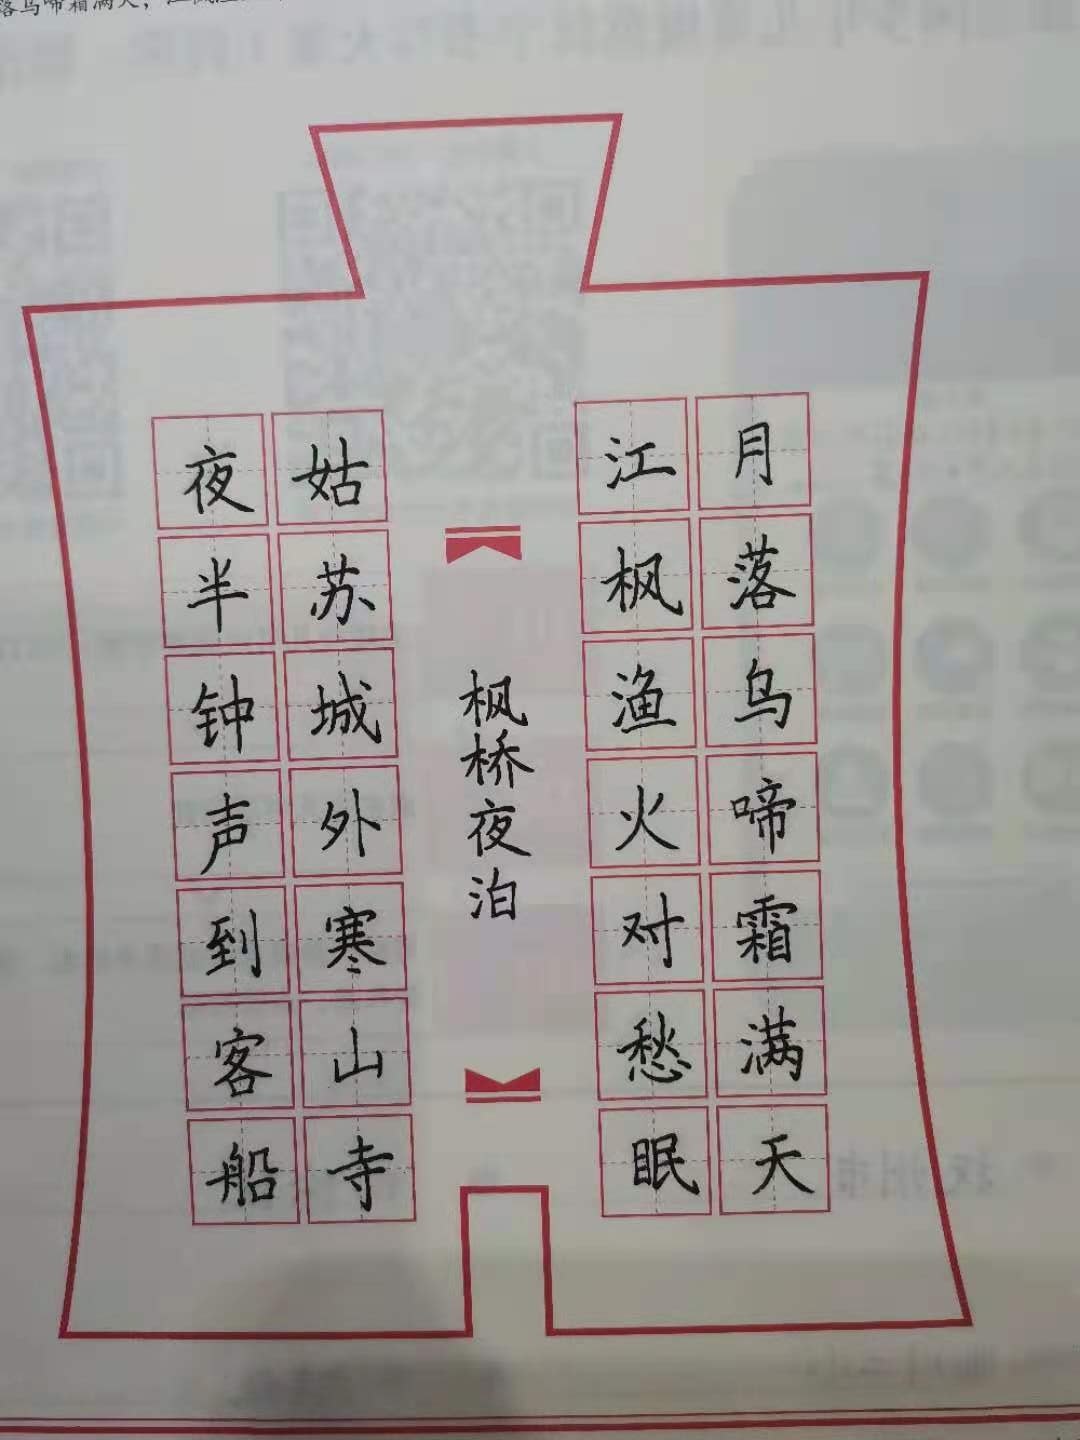 落乌啼霜满天，江枫
月落乌啼霜满天
江枫渔火对愁眠
枫桥夜泊
姑苏城外寒山寺
夜半钟声到客船